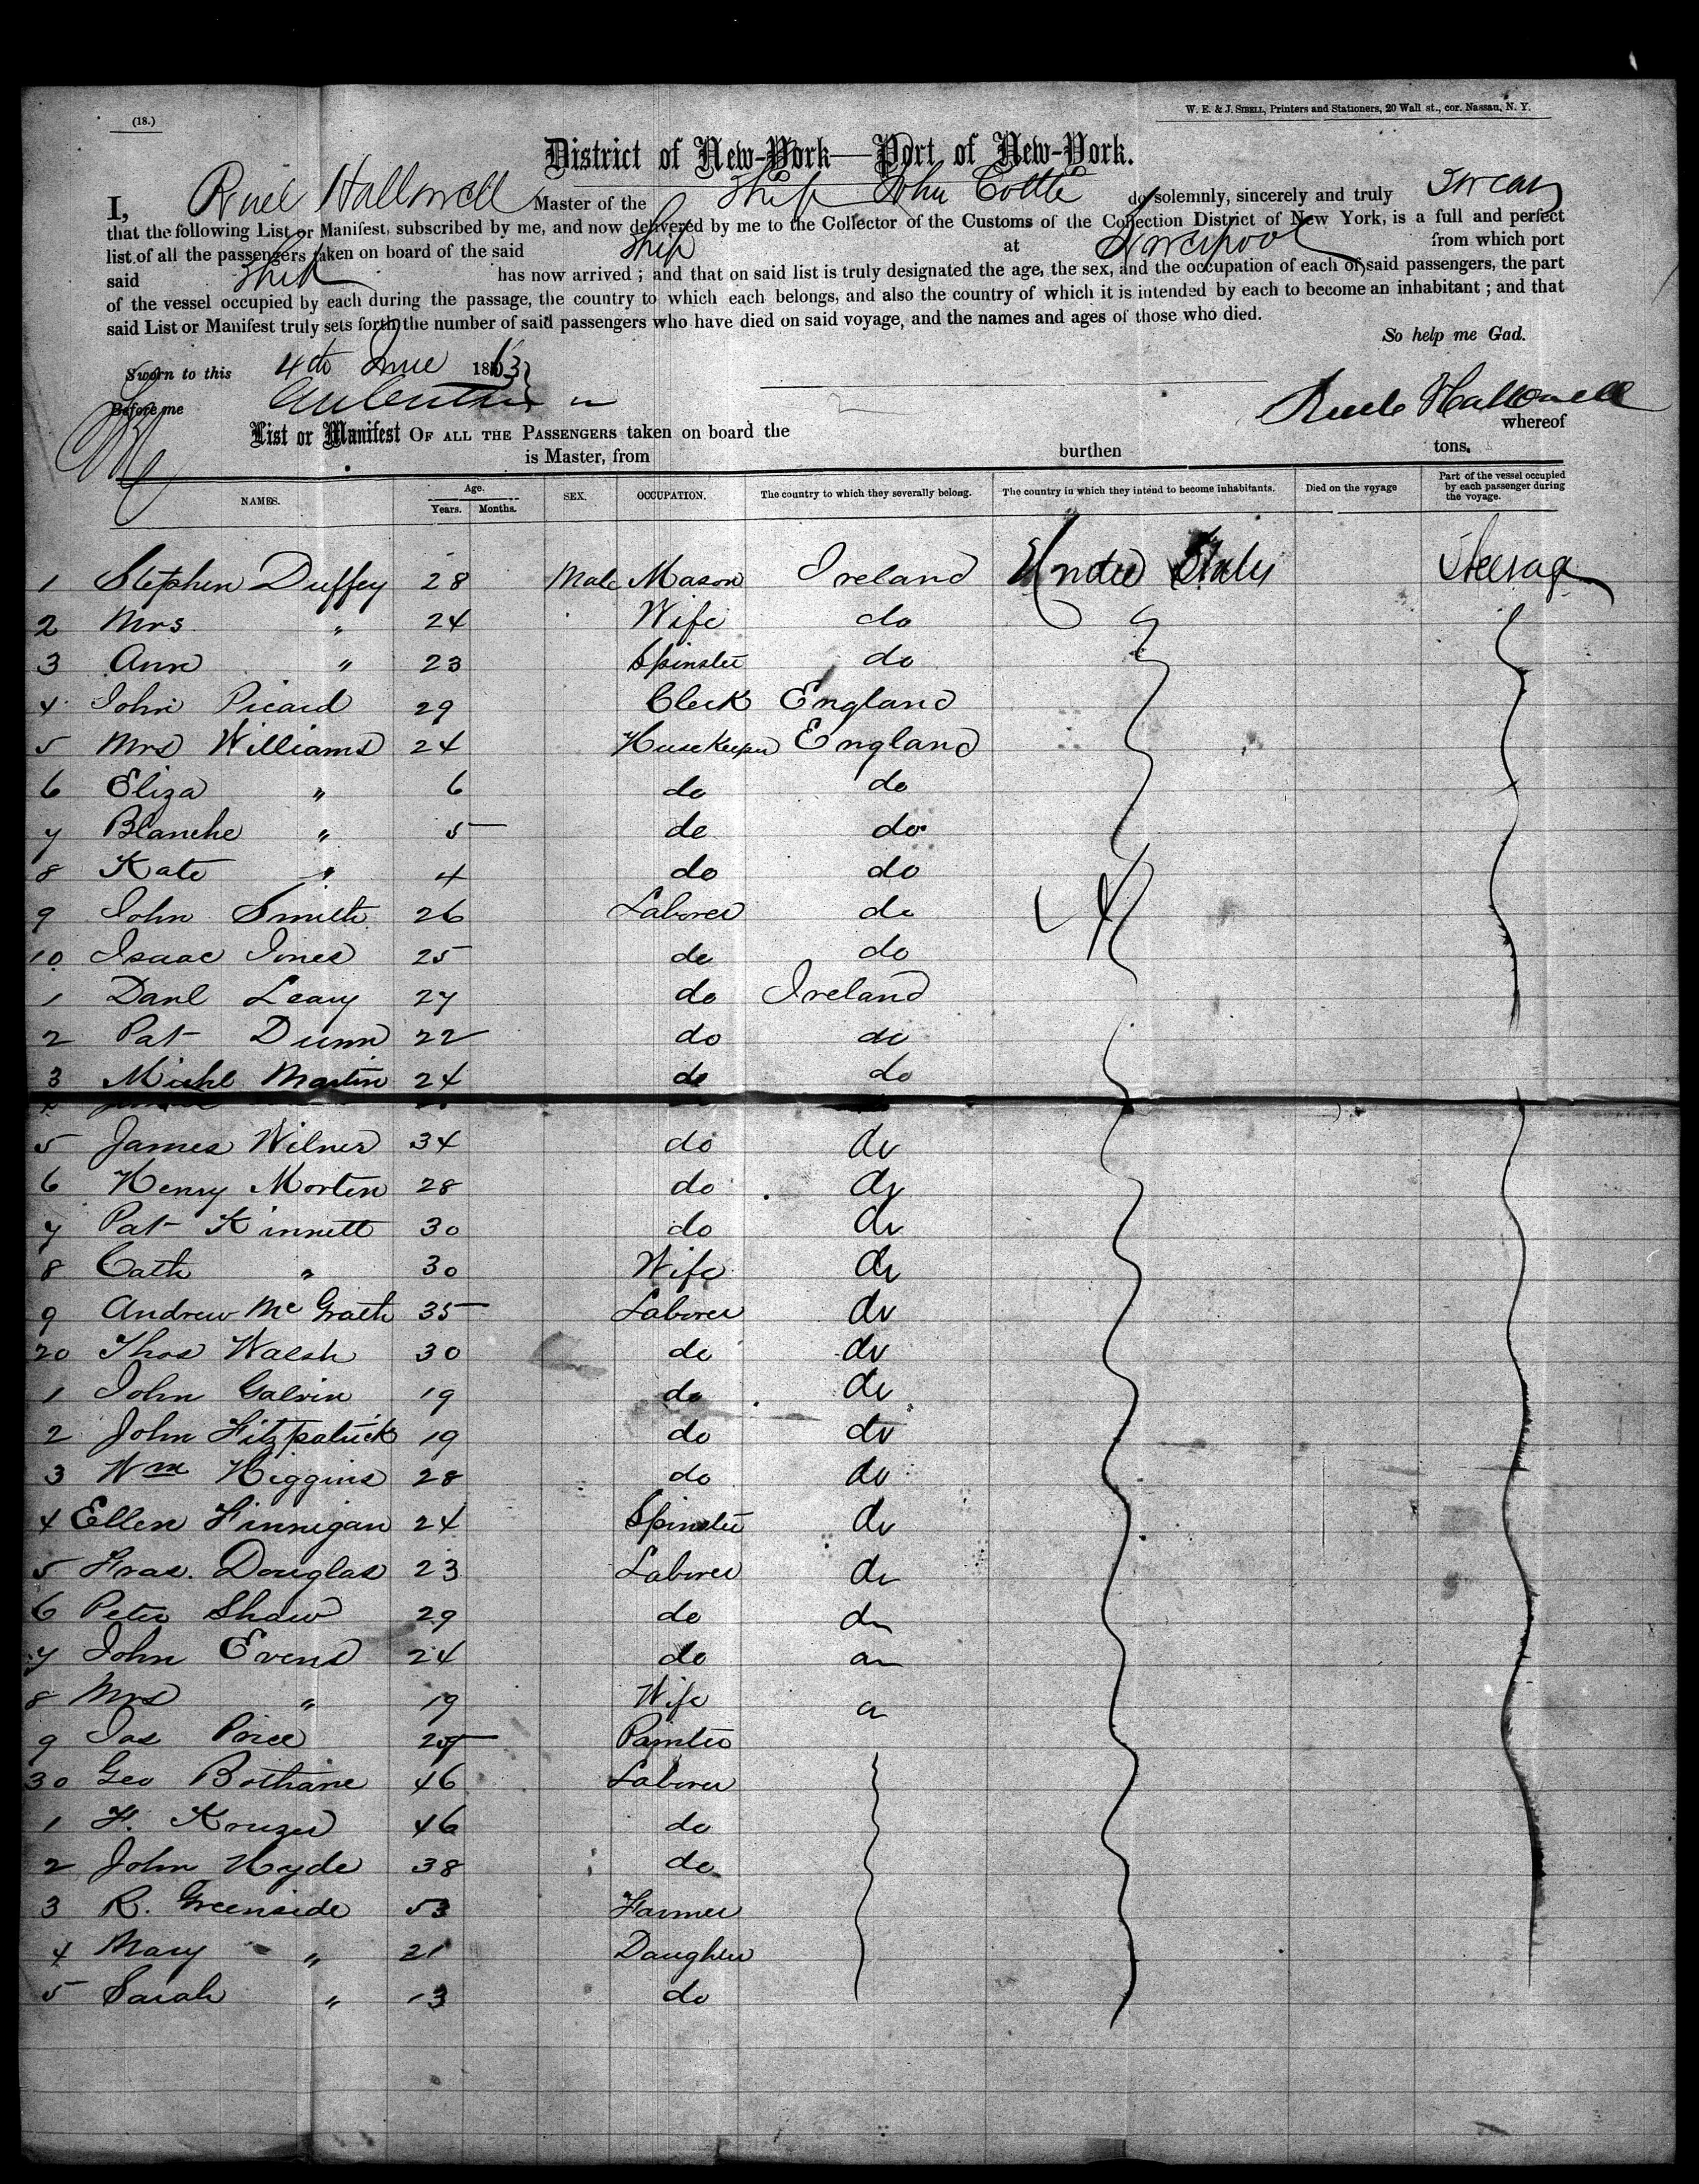 (18.)
W. E. & J. SIBELL, Printers and Stationers, 20 Wall st., cor. Nassau, N. Y.
District of New-York—Port of New-York.
I, Ruel Hallowell Master of the Ship John Cottle do solemnly, sincerely and truly swear
that the following List or Manifest, subscribed by me, and now delivered by me to the Collector of the Customs of the Collection District of New York, is a full and perfect
list of all the passengers taken on board of the said Ship at Liverpool from which port
said Ship has now arrived ; and that on said list is truly designated the age, the sex, and the occupation of each of said passengers, the part
of the vessel occupied by each during the passage, the country to which each belongs, and also the country of which it is intended by each to become an inhabitant ; and that
said List or Manifest truly sets forth the number of said passengers who have died on said voyage, and the names and ages of those who died.
So help me God.
Sworn to this 4th June 1863
Before me
Ruel Hallowell
List or Manifest OF ALL THE PASSENGERS taken on board the whereof
is Master, from burthen tons.
NAMES. Age. Years. Months. SEX. OCCUPATION. The country to which they severally belong. The country in which they intend to become inhabitants. Died on the voyage Part of the vessel occupied by each passenger during the voyage.
1 Stephen Duffey 28 Male Mason Ireland United States Steerage
2 Mrs " 24 Wife do
3 Ann " 23 Spinster do
4 John Picard 29 Clerk England
5 Mrs Williams 24 Husekeeper England
6 Eliza " 6 do do
7 Blanche " 5 do do
8 Kate " 4 do do
9 John Smith 26 Laborer do
10 Isaac Jones 25 do do
1 Danl Leary 27 do Ireland
2 Pat Dunn 22 do do
3 Michl Martin 24 do do
5 James Wilner 34 do do
6 Henry Morten 28 do do
7 Pat Kinnett 30 do do
8 Cath " 30 Wife do
9 Andrew McGrath 35 Laborer do
20 Thos Walsh 30 do do
1 John Galvin 19 do do
2 John Fitzpatrick 19 do do
3 Wm Higgins 28 do do
4 Ellen Finnigan 24 Spinster do
5 Fras. Douglas 23 Laborer do
6 Peter Shaw 29 do do
7 John Evens 24 do do
8 Mrs " 19 Wife do
9 Jas Price Painter
30 Geo Bothane 46 Laborer
1 F. Kruzer 46 do
2 John Hyde 38 do
3 R. Greenside 53 Farmer
4 Mary " 21 Daughter
5 Sarah " 13 do